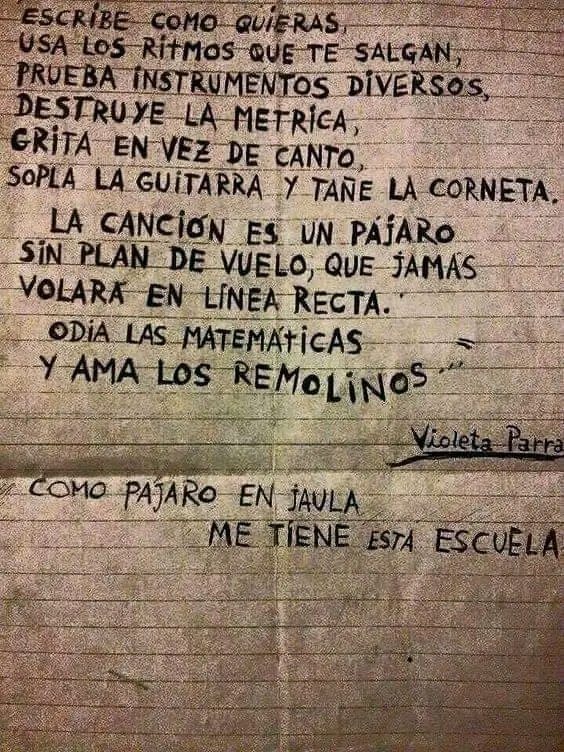 ESCRIBE COMO QUIERAS,
USA LOS RITMOS QUE TE SALGAN,
PRUEBA INSTRUMENTOS DIVERSOS,
DESTRUYE LA METRICA,
GRITA EN VEZ DE CANTO,
SOPLA LA GUITARRA Y TAÑE LA CORNETA.
LA CANCIÓN ES UN PÁJARO
SIN PLAN DE VUELO, QUE JAMÁS
VOLARÁ EN LÍNEA RECTA.
ODIA LAS MATEMÁTICAS
Y AMA LOS REMOLINOS..."
Violeta Parra
"COMO PÁJARO EN JAULA
ME TIENE ESTÁ ESCUELA